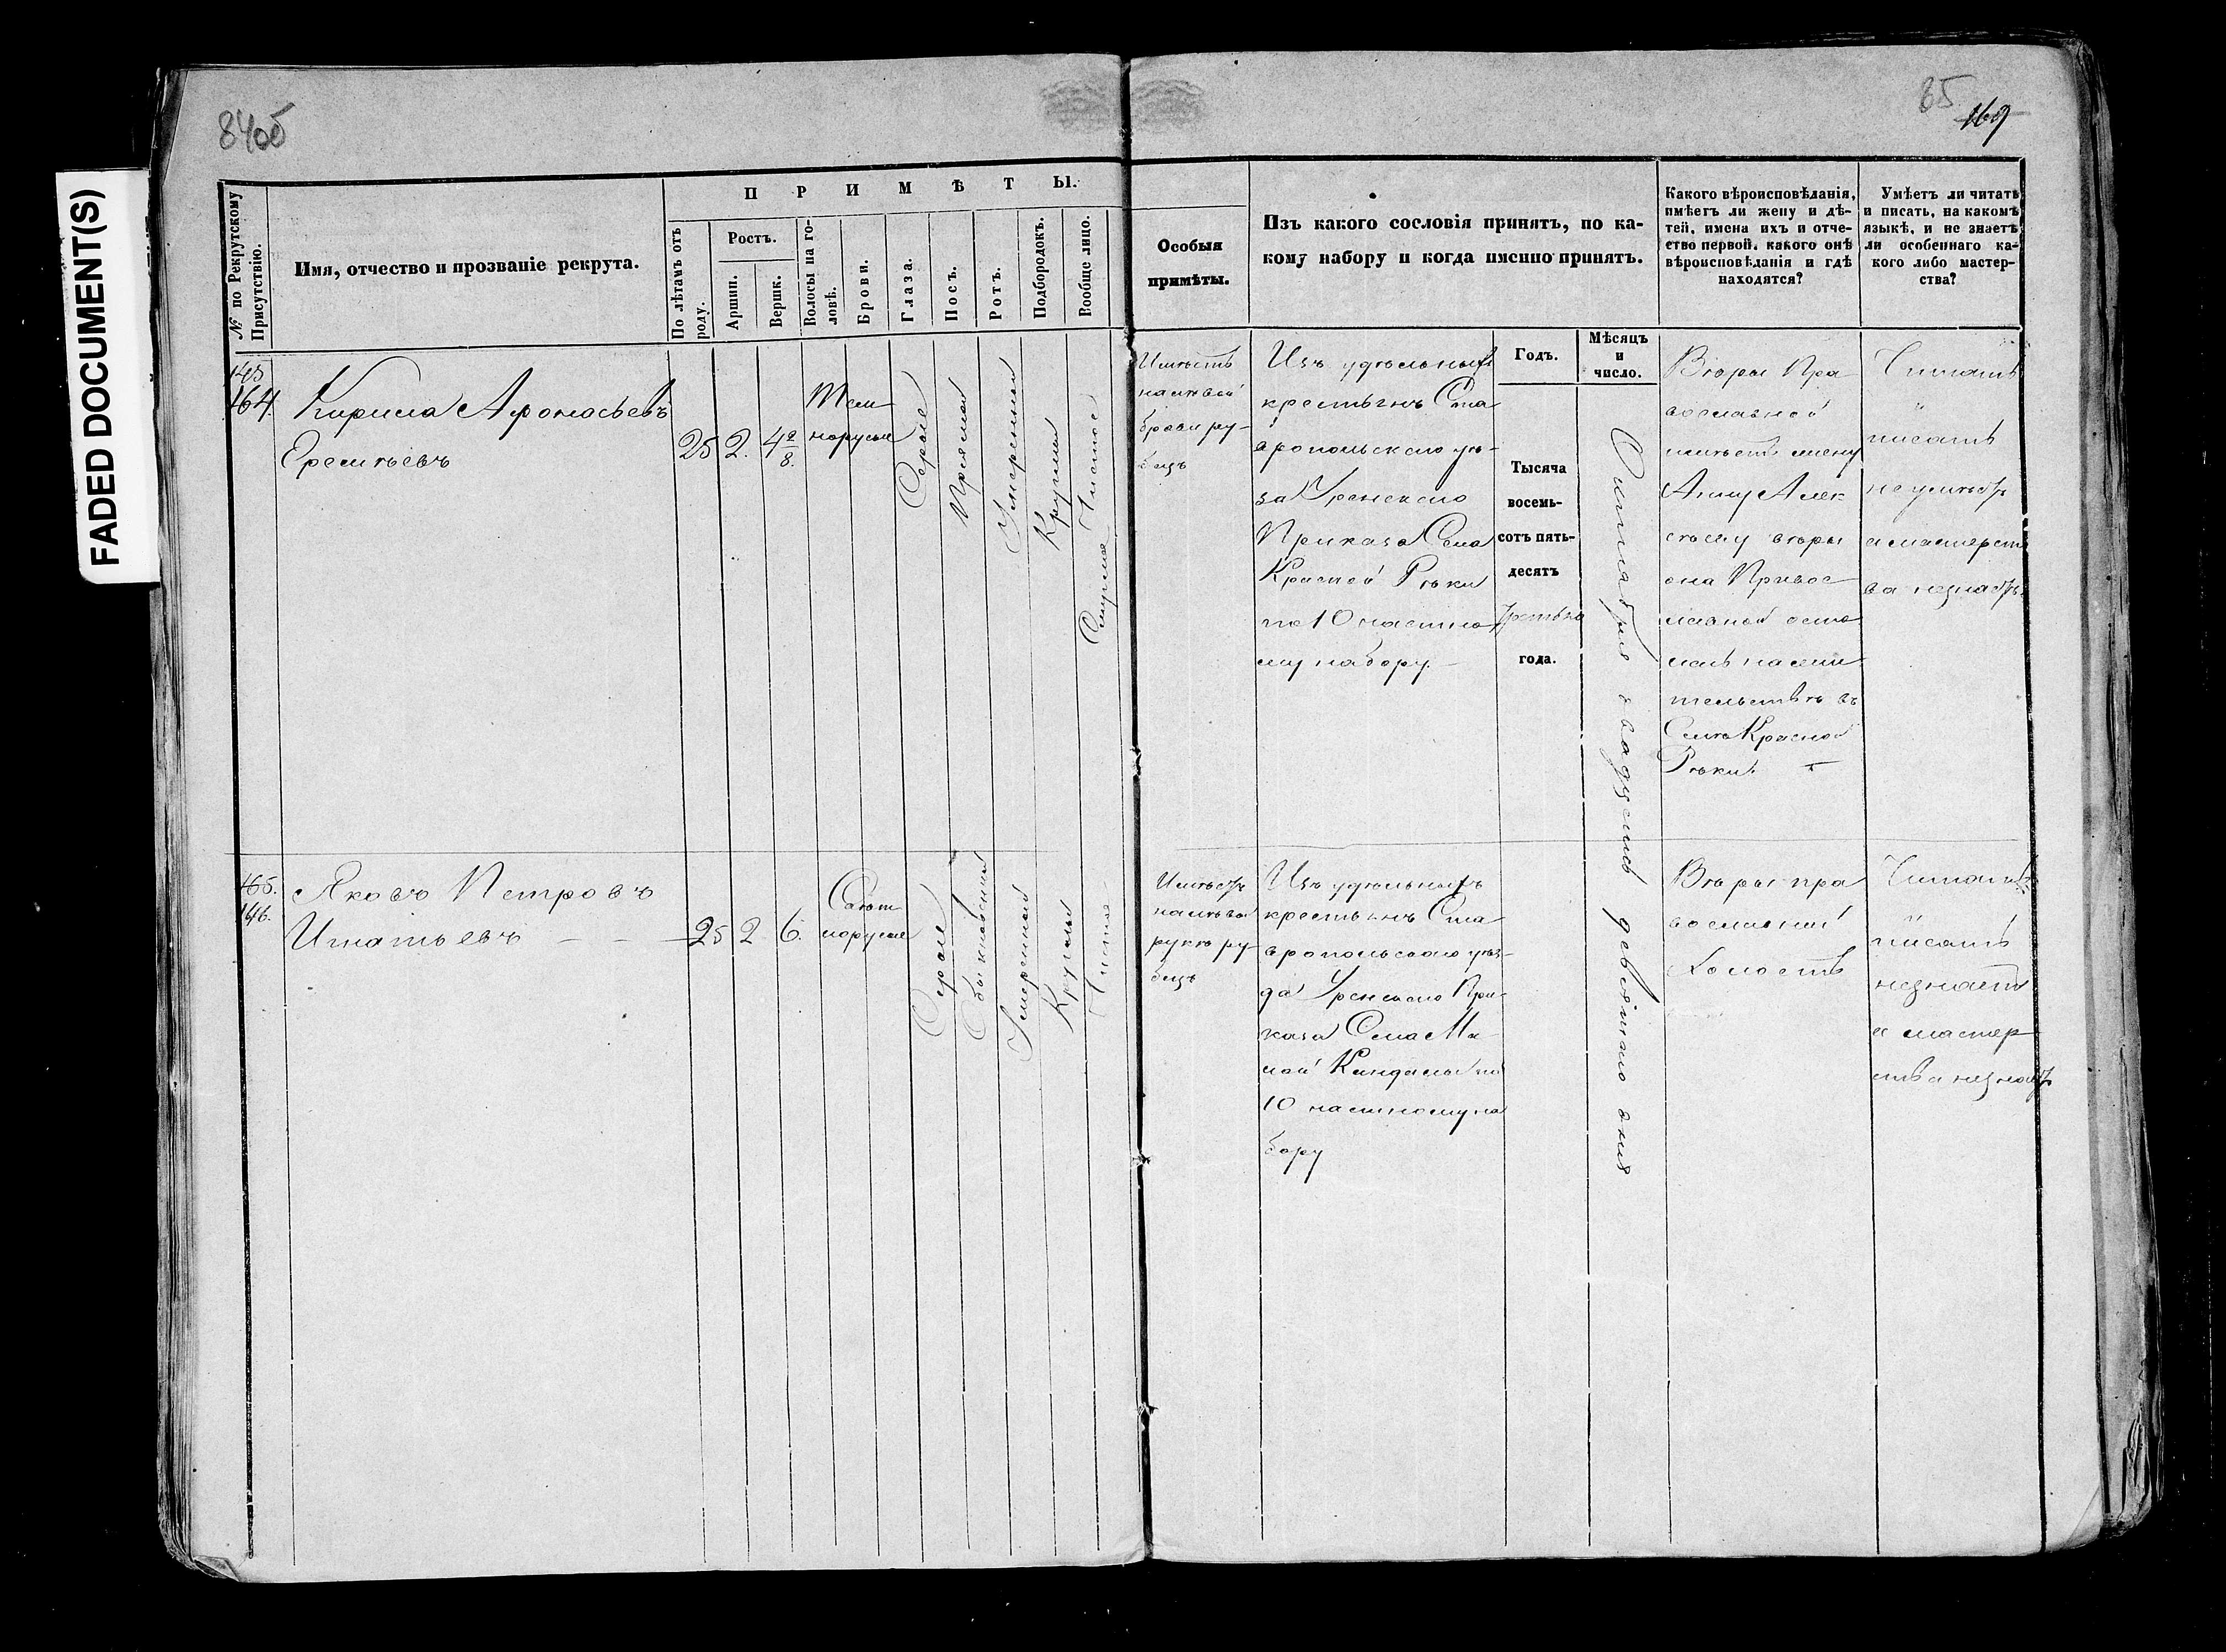 FADED DOCUMENT(S)
84об
85
169
№ по Рекрутскому
Присутствію.
Имя, отчество и прозваніе рекрута.
ПРИМѢТЫ.
По лѣтамъ отъ
роду.
Ростъ.
Аршин.
Вершк.
Волосы на го-
ловѣ.
Брови.
Глаза.
Носъ.
Ротъ.
Подбородокъ.
Вообще лицо.
Особыя
примѣты.
Изъ какого сословія принятъ, по ка-
кому набору и когда именно принятъ.
Какого вѣроисповѣданія,
имѣетъ ли жену и дѣ-
тей, имена ихъ и отче-
ство первой, какого онѣ
вѣроисповѣданія и гдѣ
находятся?
Умѣетъ ли читать
и писать, на какомъ
языкѣ, и не знаетъ
ли особеннаго ка-
кого либо мастер-
ства?
Годъ.
Мѣсяцъ
и
число.
145
164.
Кирила Афонасьевъ
Еремѣевъ
25
2.
4 2/8.
Тем
норусые
Серые
Прямой
Умеренный
Круглый
Чистое
Смуглое
Имѣетъ
на лѣвой
брови ру-
бецъ
Изъ удѣльныхъ
крестьянъ Ста
вропольскаго уѣ-
за Уренскаго
Приказа Села
Красной Рѣки
по 10 частно
му набору.
Тысяча
восемь-
сотъ пять-
десятъ
третьяго
года.
Октября двадцать девятого дня
Вѣры Пра
вославной
имѣетъ жену
Анну Алек
сѣеву вѣры
она Правос
лавной оста
лась на жи
тельствѣ въ
Селѣ Красной
Рѣки.
Читать
и
писать
неумѣетъ
а мастерст
ва незнаетъ.
165.
146.
Яковъ Петровъ
Игнатьевъ
25
2
6.
Свѣт
лорусые
Серые
Обыкновенный
Умеренный
Круглый
Чистое
Имѣетъ
на лѣвой
рукѣ ру-
бецъ
Изъ удѣльныхъ
крестьянъ Ста
вропольскаго уѣз-
да Уренскаго При-
каза Села Ма
лой Кандалы по
10 частному на
бору
Вѣры пра
вославной
Холостъ
Читать
писать
незнаетъ
и мастер
ства незнаетъ